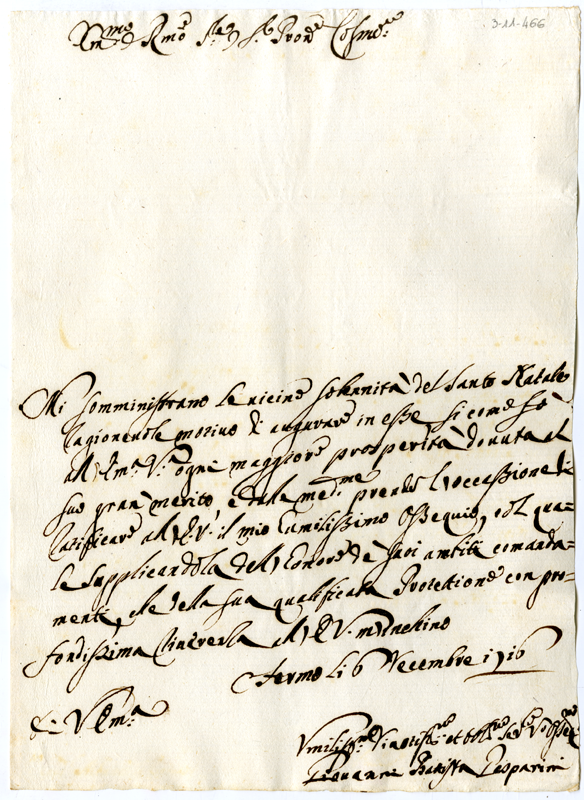 3-11-466
Em.mo e R.mo Sig.re Sig.r Pron.e Col.mo
Mi somministrano le vicine solennità del Santo Natale
ragionevole motivo di augurare in esse si come fò
all'Em.a V.a ogni maggiore prosperità dovuta al
suo gran merito, e dalla med.ma prendo l'occassione di
ratificare all'E.V. il mio umilissimo ossequio, col qua=
le supplicandola dell'onore de suoi ambiti comanda=
menti, e della sua qualificata Protettione con pro=
fondissima riverenza all'E.V. m'inchino
Fermo li 6 Decembre 1716
Di V. Em.a
Vmiliss.mo Divotiss.mo et Obl.mo Ser.re
Giovanni Battista Gasparini